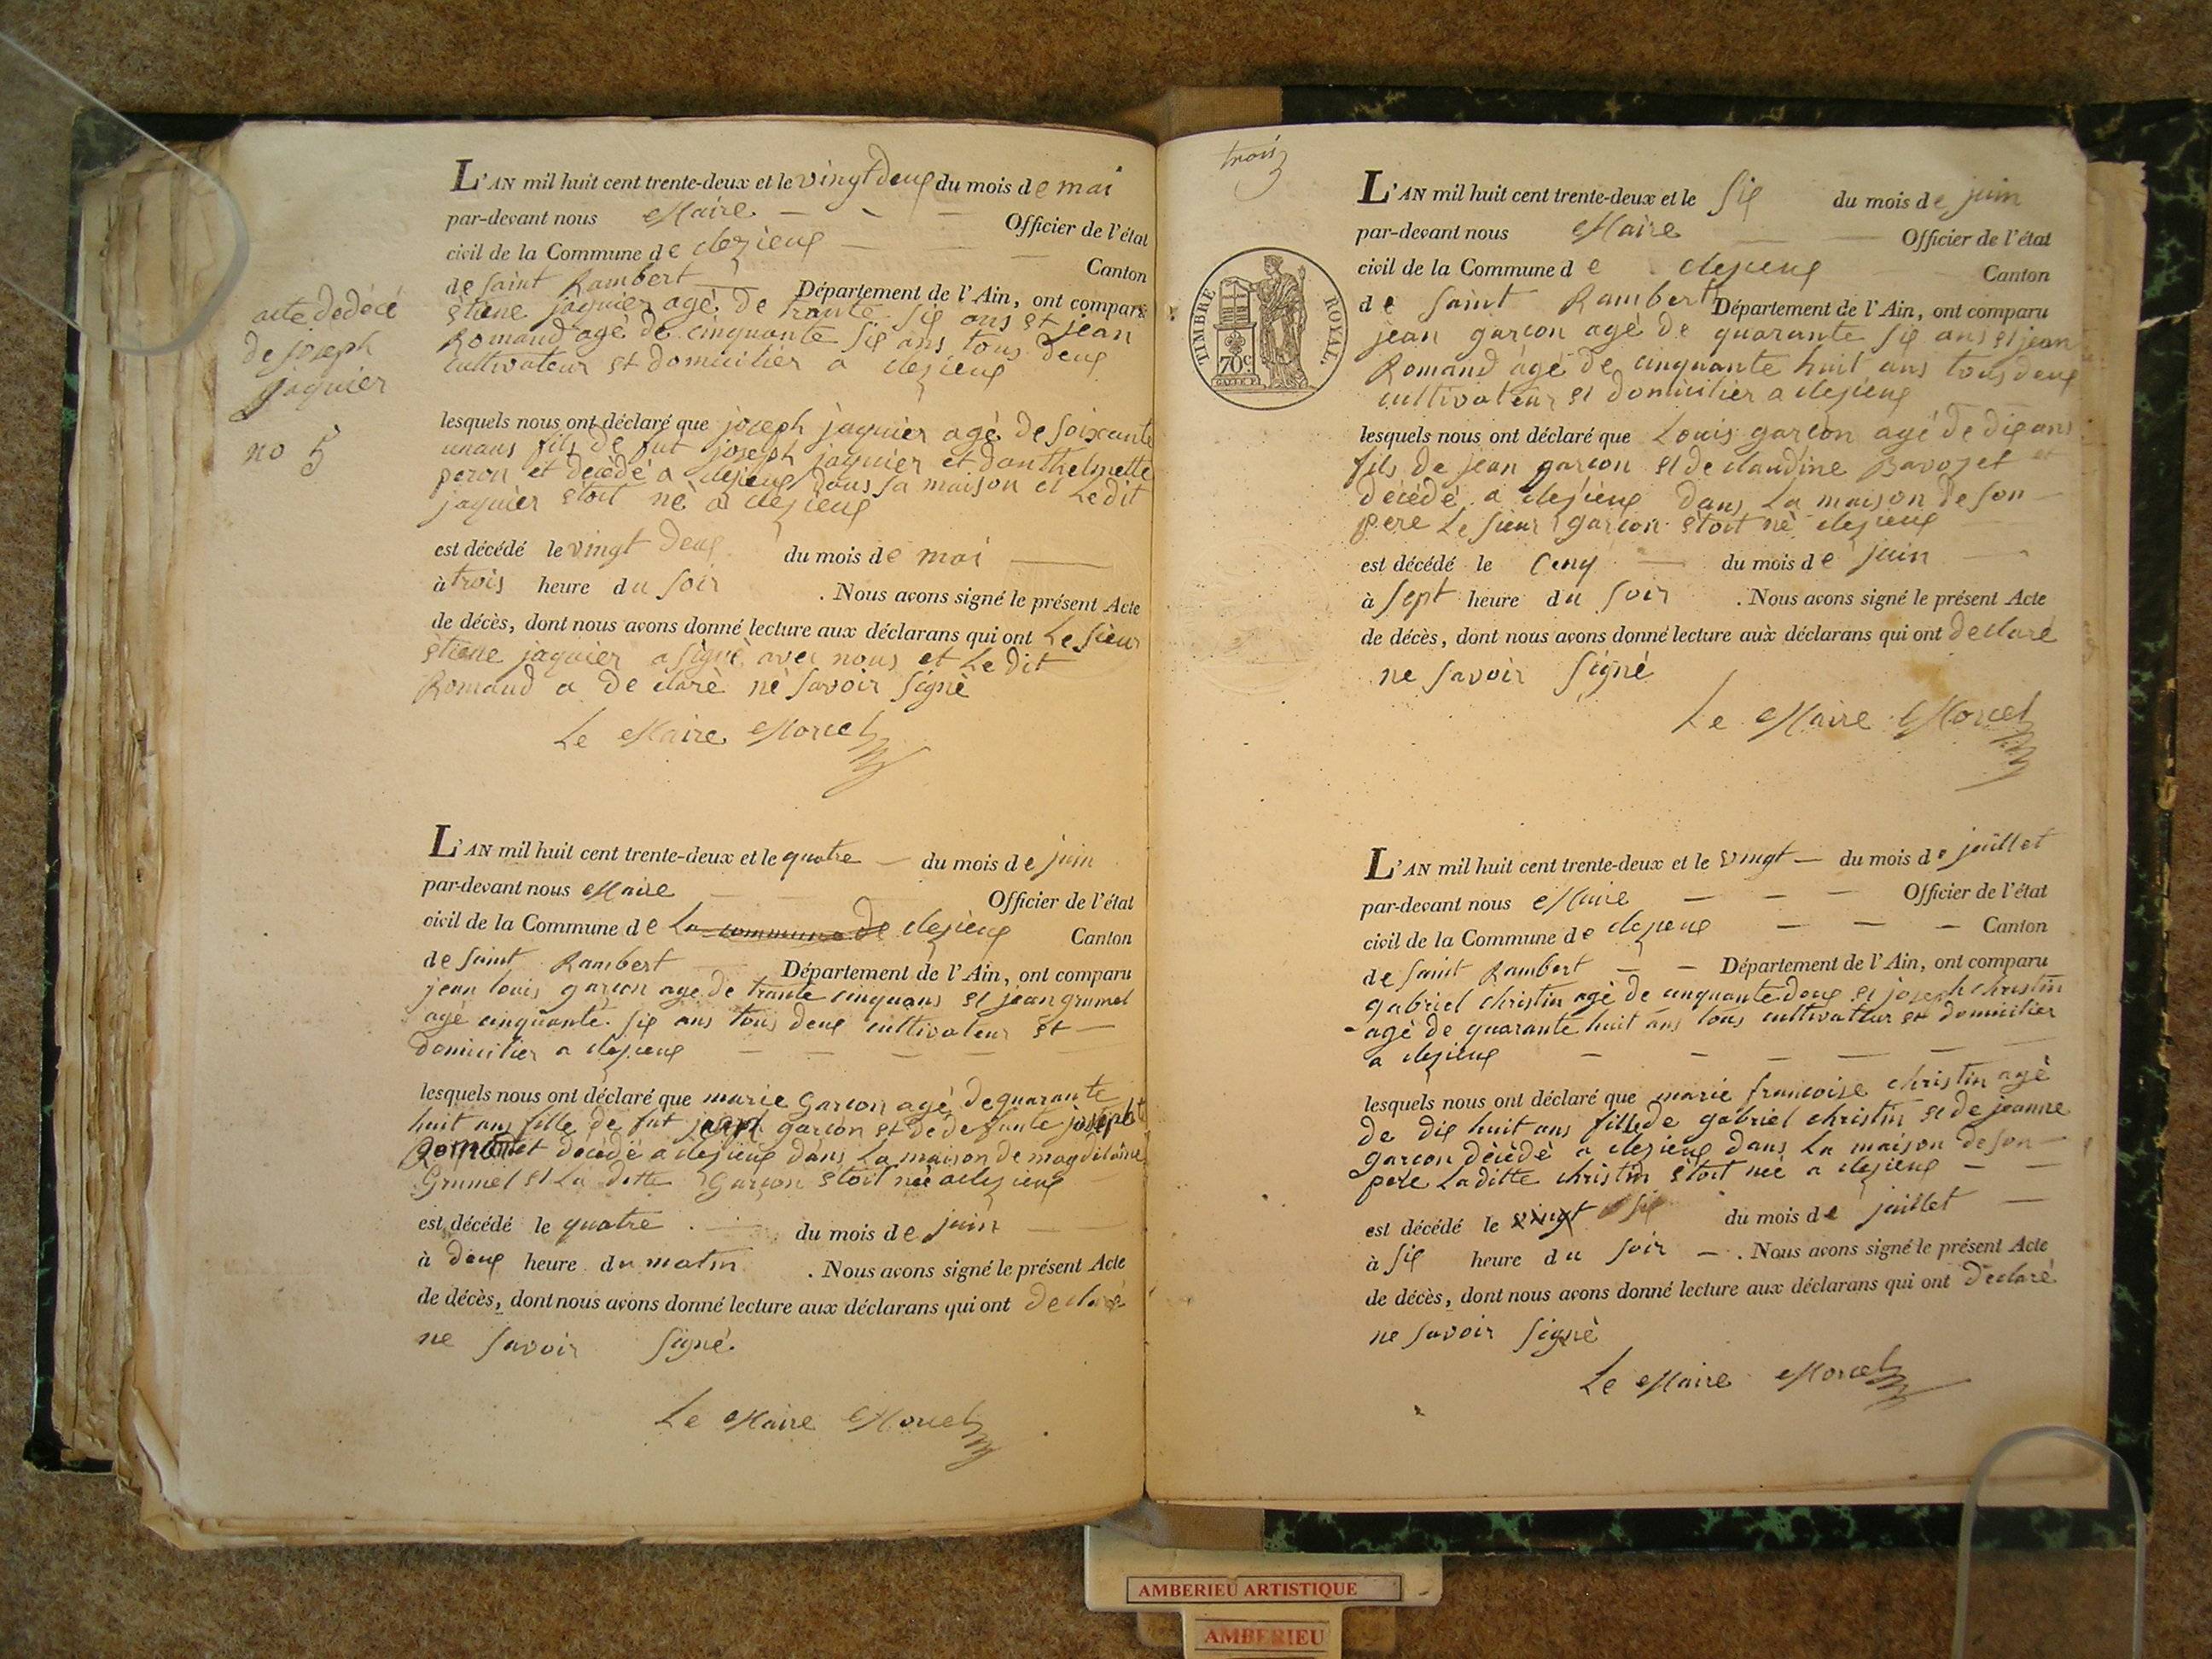 acte dedécé
de joseph
jaquier
no 5
L'AN mil huit cent trente-deux et le vingt deux du mois de mai
par-devant nous Maire Officier de l'état
civil de la Commune de clezieux Canton
de saint Rambert Département de l'Ain, ont comparu
étiene jaquier agé de trante six ans et jean
Romand agé de cinquante six ans tous deux
cultivateur et domicilier a clezieux
lesquels nous ont déclaré que joseph jaquier agé de soixante
unans fils de fut joseph jaquier et danthelmette
peron et décédé a clezieux dans sa maison et Le dit
jaquier étoit né a clezieux
est décédé le vingt deux du mois de mai
à trois heure du soir . Nous avons signé le présent Acte
de décès, dont nous avons donné lecture aux déclarans qui ont Le sieur
étiene jaquier a signé avec nous et Le dit
Romand a de claré né savoir signé
Le Maire Morcel
L'AN mil huit cent trente-deux et le quatre du mois de juin
par-devant nous Maire Officier de l'état
civil de la Commune de La commune de clezieux Canton
de saint Rambert Département de l'Ain, ont comparu
jean louis garcon age de trante cinquans et jean grumel
agé cinquante six ans tous deux cultivateur et
domicilier a clezieux
lesquels nous ont déclaré que marie Garcon agé de quarante
huit ans fille de fut joseph garcon et de defunte josepht
et décédé a clezieux dans La maison de magdelaine
Grumel et La ditte Garcon étoit né a clezieux
est décédé le quatre du mois de juin
à deux heure du matin . Nous avons signé le présent Acte
de décès, dont nous avons donné lecture aux déclarans qui ont declaré
ne savoir signé.
Le Maire Morcel
trois
TIMBRE ROYAL
70c
L'AN mil huit cent trente-deux et le six du mois de juin
par-devant nous Maire Officier de l'état
civil de la Commune de clezieux Canton
de saint Rambert Département de l'Ain, ont comparu
jean garcon agé de quarante six ans et jean
Romand agé de cinquante huit ans tous deux
cultivateur et domicilier a clezieux
lesquels nous ont déclaré que Louis garcon agé de dix ans
fils de jean garcon et de claudine Bavozet et
décédé a clezieux dans La maison de son
pere Le sieur garcon étoit né clezieux
est décédé le cinq du mois de juin
à sept heure du soir . Nous avons signé le présent Acte
de décès, dont nous avons donné lecture aux déclarans qui ont declaré
ne savoir signé
Le Maire Morcel
L'AN mil huit cent trente-deux et le vingt du mois de juillet
par-devant nous Maire Officier de l'état
civil de la Commune de clezieux Canton
de saint Rambert Département de l'Ain, ont comparu
gabriel christin agé de cinquante deux et joseph christin
agé de quarante huit ans tous cultivateur et domicilier
a clezieux
lesquels nous ont déclaré que marie francoise christin agé
de dix huit ans fille de gabriel christin et de jeanne
garcon décédé a clezieux dans La maison de son
pere La ditte christin étoit neé a clezieux
est décédé le vingt six du mois de juillet
à six heure du soir . Nous avons signé le présent Acte
de décès, dont nous avons donné lecture aux déclarans qui ont declaré
ne savoir signé
Le Maire Morcel
AMBERIEU ARTISTIQUE
AMBERIEU